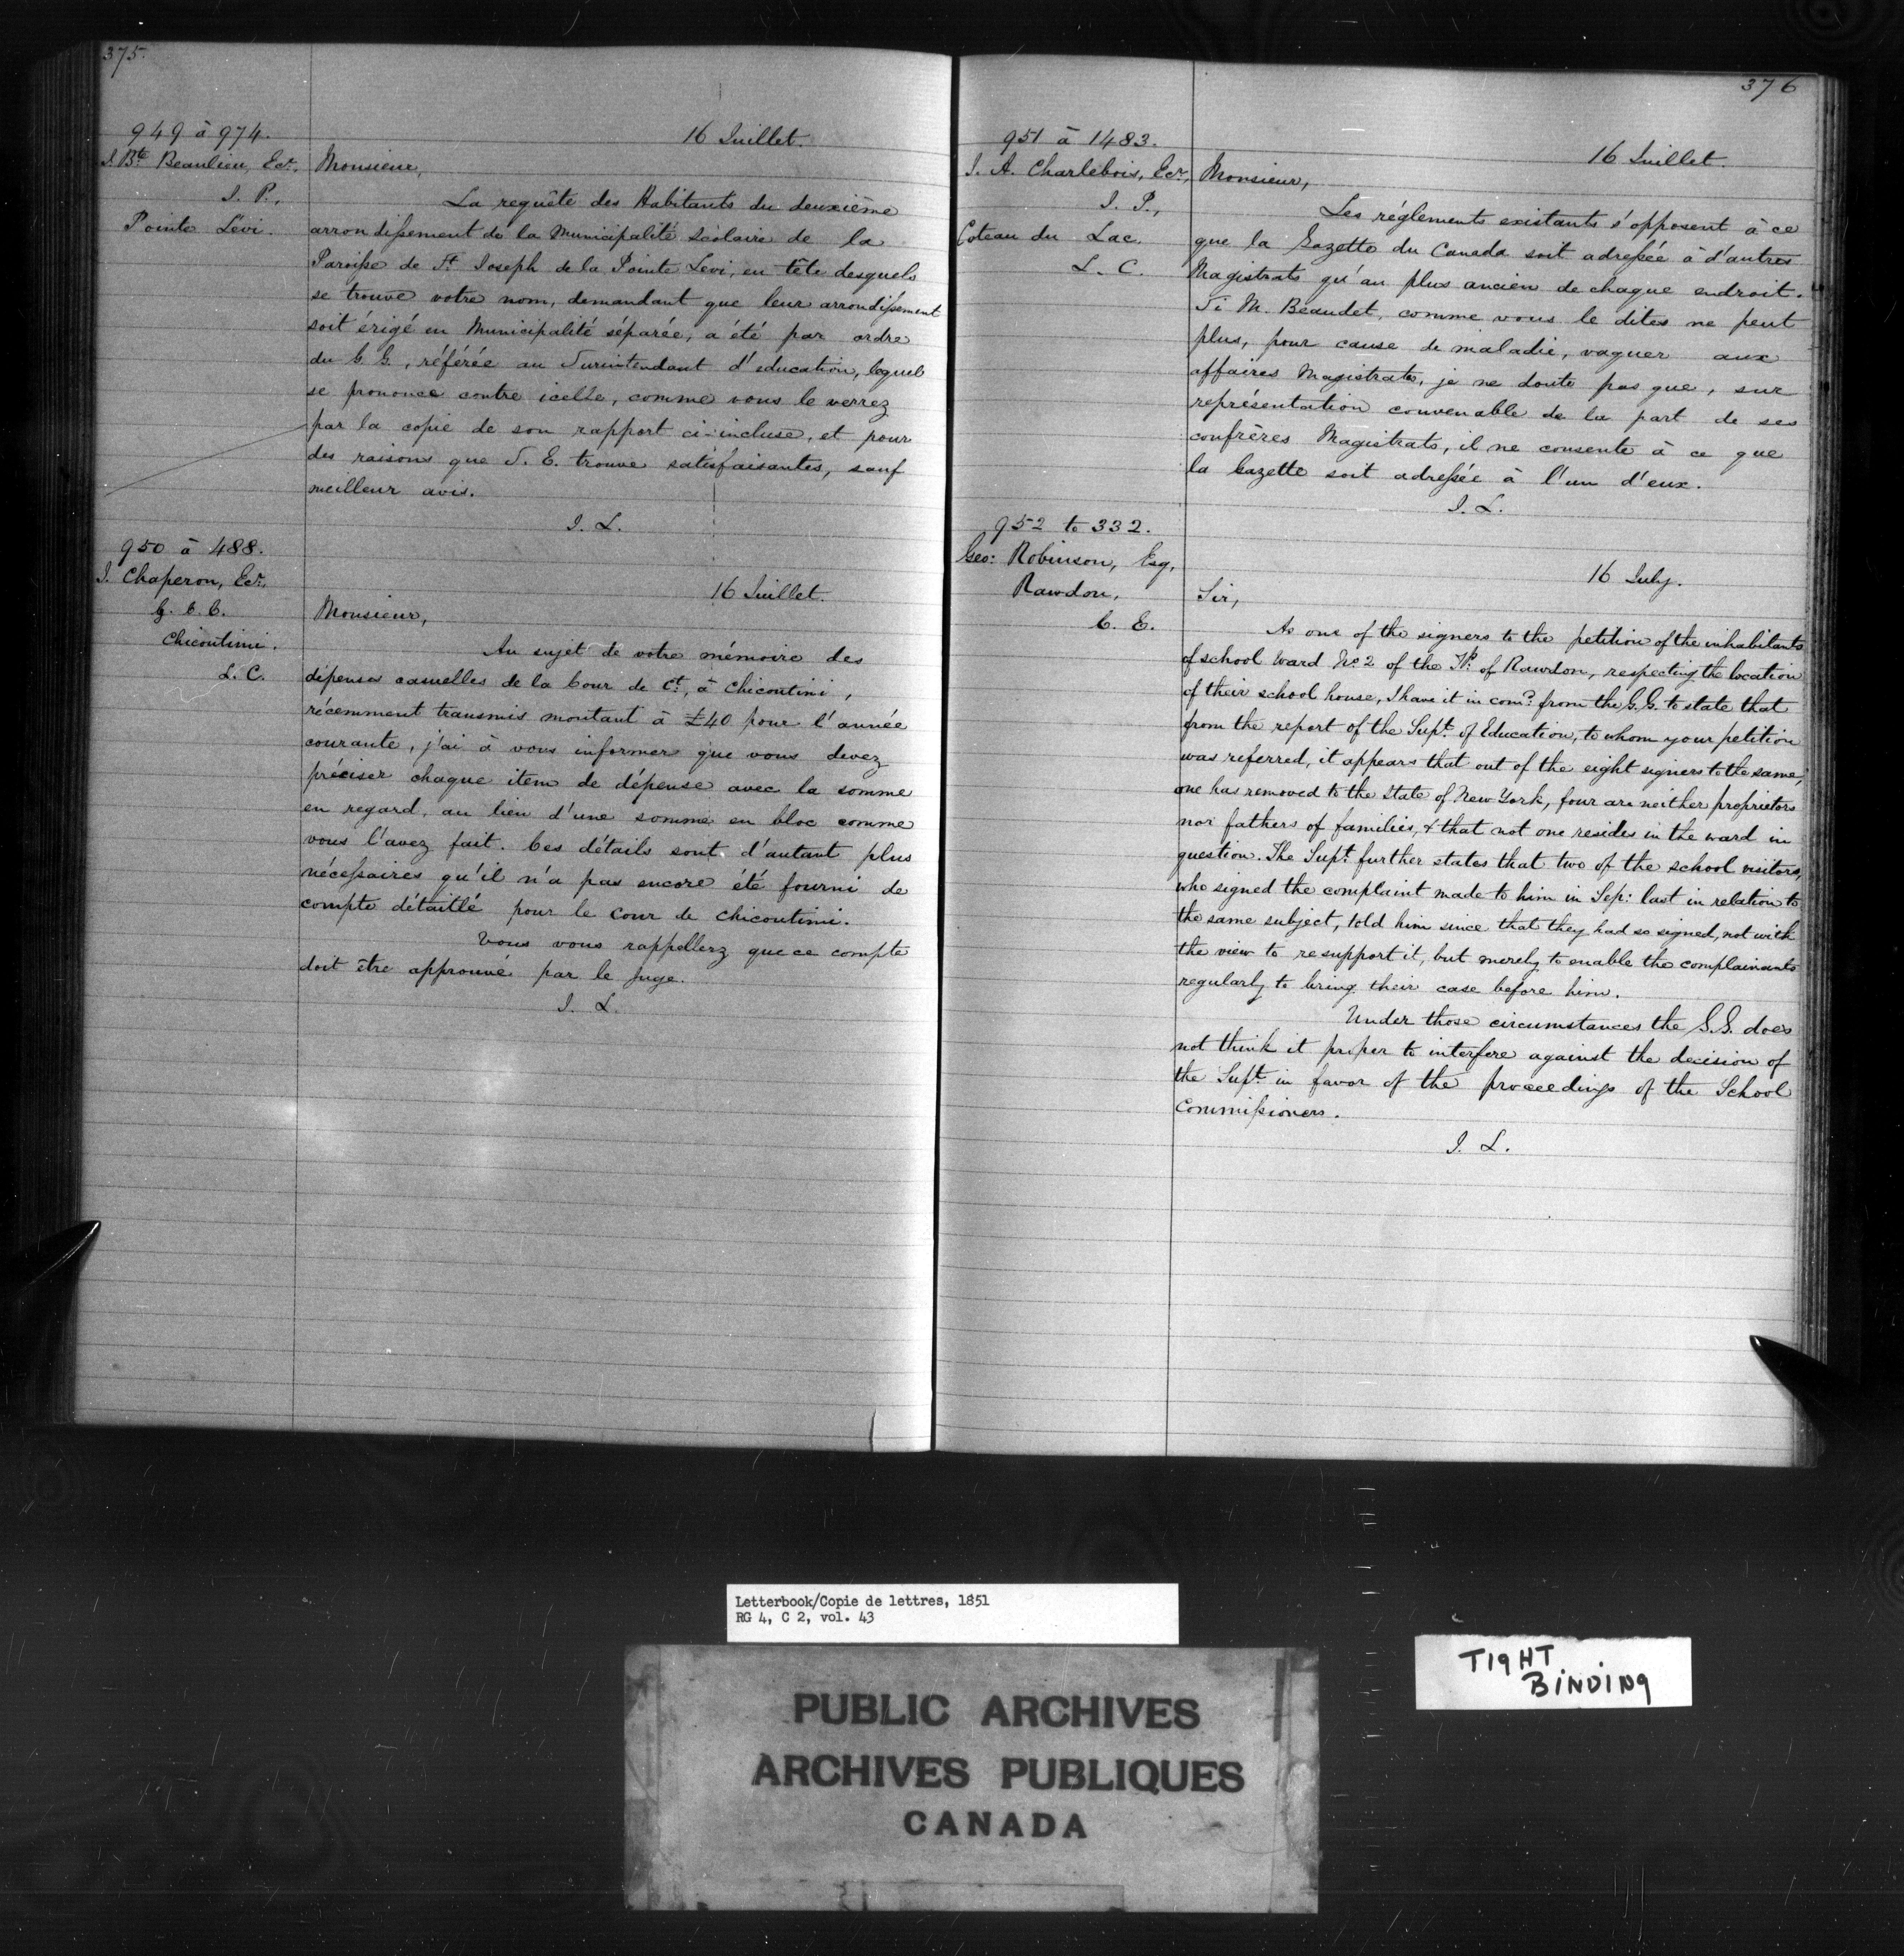 375.
949 à 974.
J. Bte Beaulieu, Ecr.
J. P.,
Pointe Lévi.
16 Juillet.
Monsieur,
La requête des Habitants du deuxième
arrondissement de la Municipalité Scolaire de la
Paroisse de St Joseph de la Pointe Levi, en tête desquels
se trouve votre nom, demandant que leur arrondissement
soit érigé en Municipalité séparée, a été par ordre
du G. G., référée au Surintendant d'education, lequel
se prononce contre icelle, comme vous le verrez
par la copie de son rapport ci-incluse, et pour
des raisons que S. E. trouve satisfaisantes, sauf
meilleur avis.
J. L.
950 à 488.
J. Chaperon, Ecr.
G. C. C.
Chicoutimi.
L. C.
16 Juillet.
Monsieur,
Au sujet de votre mémoire des
dépenses casuelles de la Cour de Ct, à Chicoutimi,
récemment transmis montant à £40 pour l'année
courante, j'ai à vous informer que vous devez
préciser chaque item de dépense avec la somme
en regard, au lieu d'une somme en bloc comme
vous l'avez fait. Ces détails sont d'autant plus
nécessaires qu'il n'a pas encore été fourni de
compte détaillé pour le Cour de Chicoutimi.
Vous vous rappellerz que ce compte
doit être approuvé par le Juge.
J. L.
376
951 à 1483.
J. A. Charlebois, Ecr,
J. P.,
Coteau du Lac.
L. C.
16 Juillet.
Monsieur,
Les réglements existants s'opposent à ce
que la Gazette du Canada soit adressée à d'autres
Magistrats qu'au plus ancien de chaque endroit.
Si M. Beaudet, comme vous le dites ne peut
plus, pour cause de maladie, vaquer aux
affaires Magistrates, je ne doute pas que, sur
représentation convenable de la part de ses
confrères Magistrats, il ne consente à ce que
la Gazette soit adressée à l'un d'eux.
J. L.
952 to 332.
Geo: Robinson, Esq,
Rawdon,
C. E.
16 July.
Sir,
As one of the signers to the petition of the inhabitants
of school Ward No 2 of the Tp. of Rawdon, respecting the location
of their school house, I have it in comd from the G. G. to state that
from the report of the Supt of Education, to whom your petition
was referred, it appears that out of the eight signers to the same,
one has removed to the State of New York, four are neither proprietors
nor fathers of families, & that not one resides in the ward in
question. The Supt further states that two of the school visitors,
who signed the complaint made to him in Sep: last in relation to
the same subject, told him since that they had so signed, not with
the view to resupport it, but merely to enable the complainants
regularly to bring their case before him.
Under those circumstances the G. G. does
not think it proper to interfere against the decision of
the Supt in favor of the proceedings of the School
Commissioners.
J. L.
Letterbook/Copie de lettres, 1851
RG 4, C 2, vol. 43
TIGHT
BINDING
PUBLIC ARCHIVES
ARCHIVES PUBLIQUES
CANADA